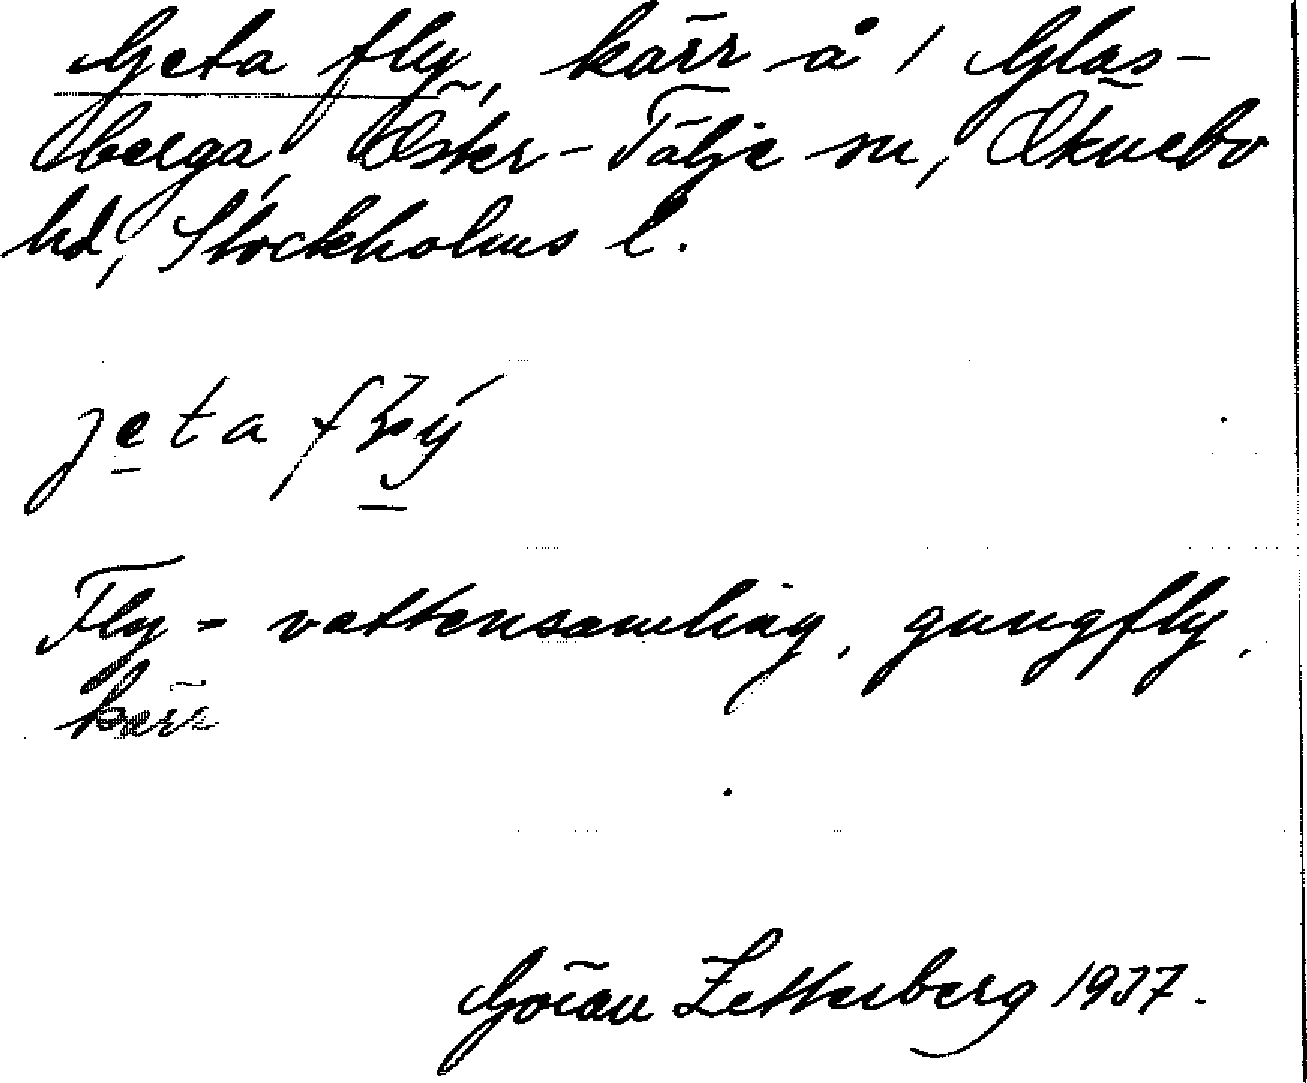 Geta fly, kärr å / Glas-
berga, Öster-Tälje sn, Öknebo
hd, Stockholms l.
Fly = vattensamling, gungfly,
kärr
Göran Zetterberg 1937.